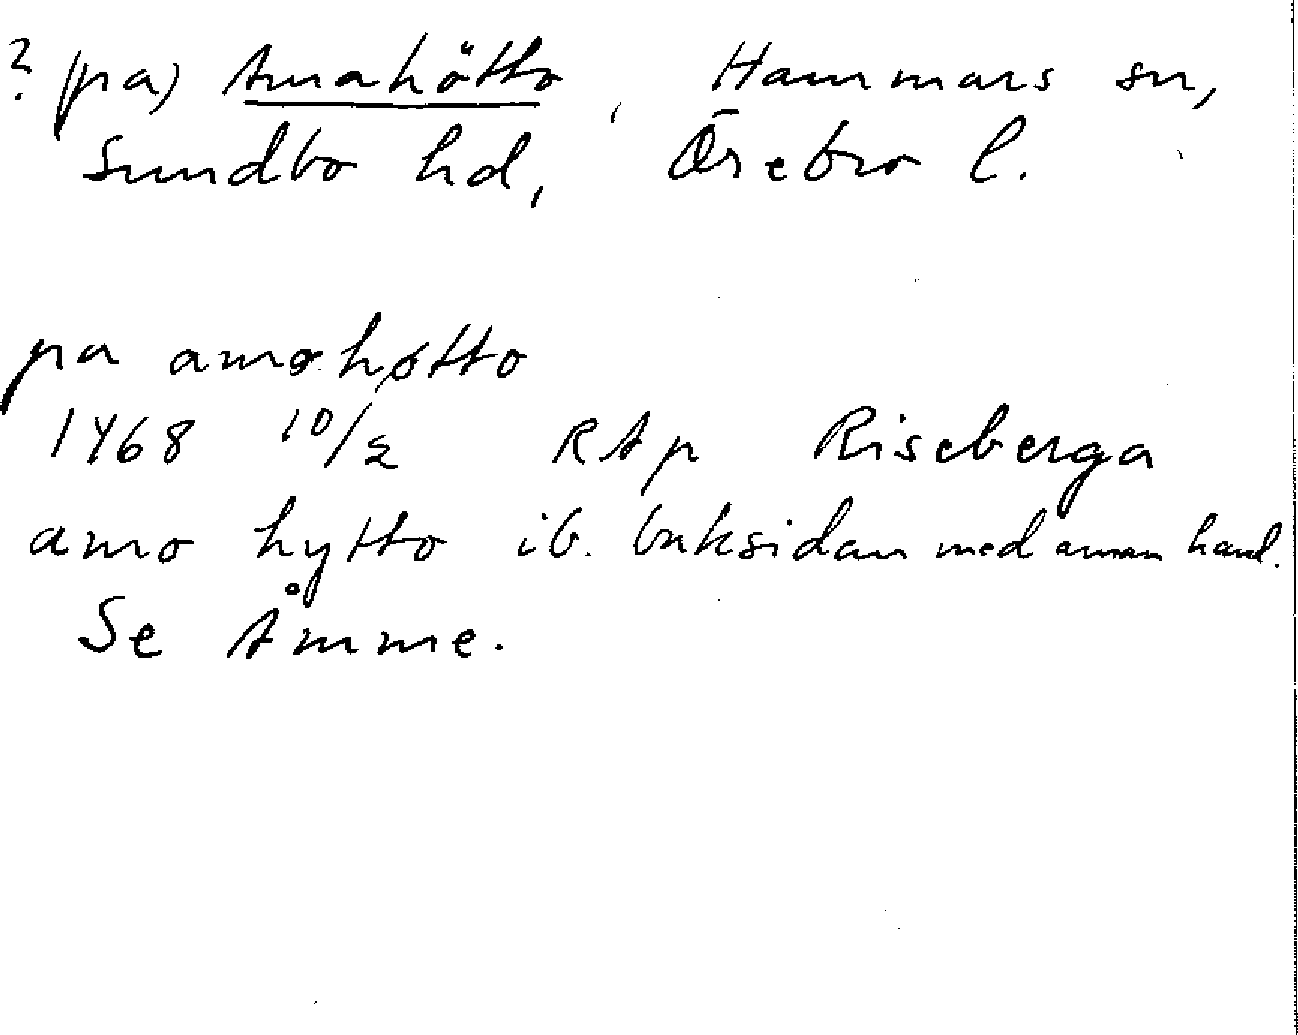 ? (pa) Amahötto, Hammars sn,
Sundbo hd, Örebro l.
pa amahøtto
1468 10/2 RAp Riseberga
amo hytto ib. baksidan med annan hand.
Se Åmme.